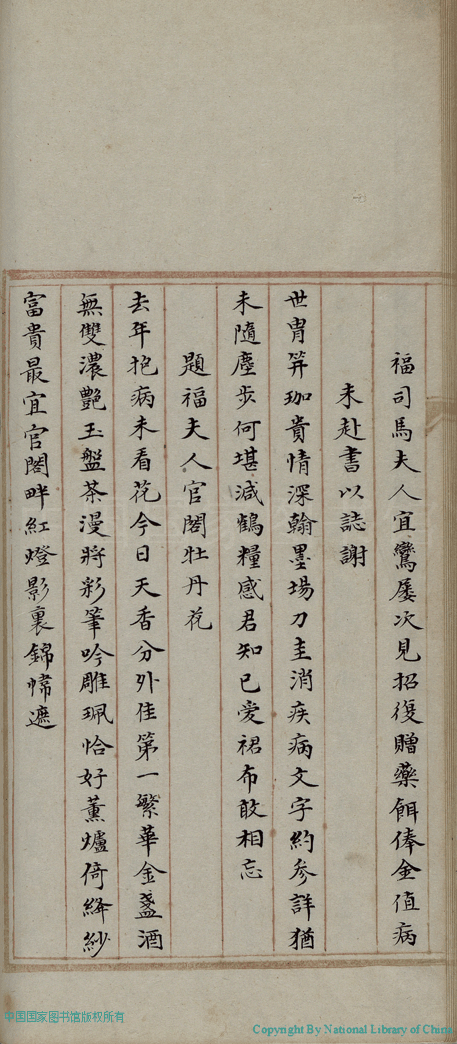 福司馬夫人宜鸞屢次見招復贈藥餌俸金值病
未赴書以誌謝
世胄笄珈貴情深翰墨場刀圭消疾病文字約參詳猶
未隨塵步何堪減鶴糧感君知己愛裙布敢相忘
題福夫人官閣牡丹花
去年抱病未看花今日天香分外佳第一繁華金盞酒
無雙濃艷玉盤茶漫將彩筆吟雕珮恰好薰爐倚絳紗
富貴最宜官閣畔紅燈影裏錦幃遮
中国国家图书馆版权所有
Copyright By National Library of China